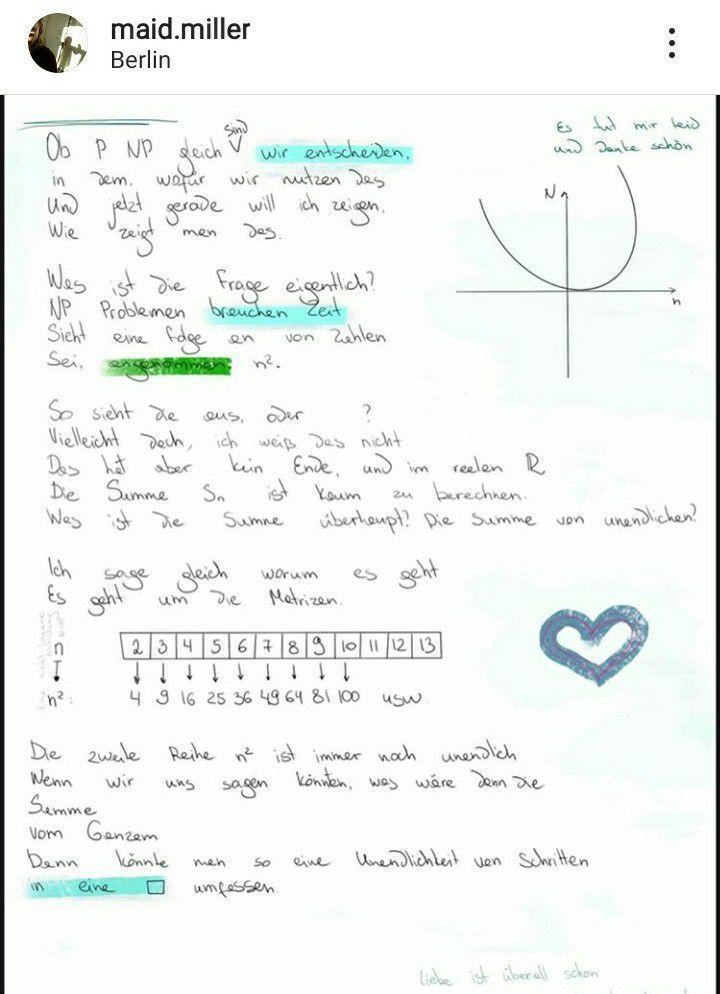 maid.miller
Berlin
Es tut mir leid
und danke schön
Ob P NP gleich sind wir entscheiden,
in dem, wofür wir nutzen das
Und jetzt gerade will ich zeigen,
Wie zeigt man das.
N
n
Was ist die Frage eigentlich?
NP Problemen brauchen Zeit
Sieht eine Folge an von Zahlen
Sei, angenommen n².
So sieht die aus, oder ?
Vielleicht doch, ich weiß das nicht
Das hat aber kein Ende, und im reelen ℝ
Die Summe Sn ist kaum zu berechnen.
Was ist die Summe überhaupt? Die Summe von unendlichen?
Ich sage gleich worum es geht
Es geht um die Matrizen.
n 2 3 4 5 6 7 8 9 10 11 12 13
n²: 4 9 16 25 36 49 64 81 100 usw.
Die zweite Reihe n² ist immer noch unendlich
Wenn wir uns sagen könnten, was wäre denn die
Summe
vom Ganzem
Dann könnte man so eine Unendlichkeit von Schritten
in eine □ umfassen.
liebe ist überall schon